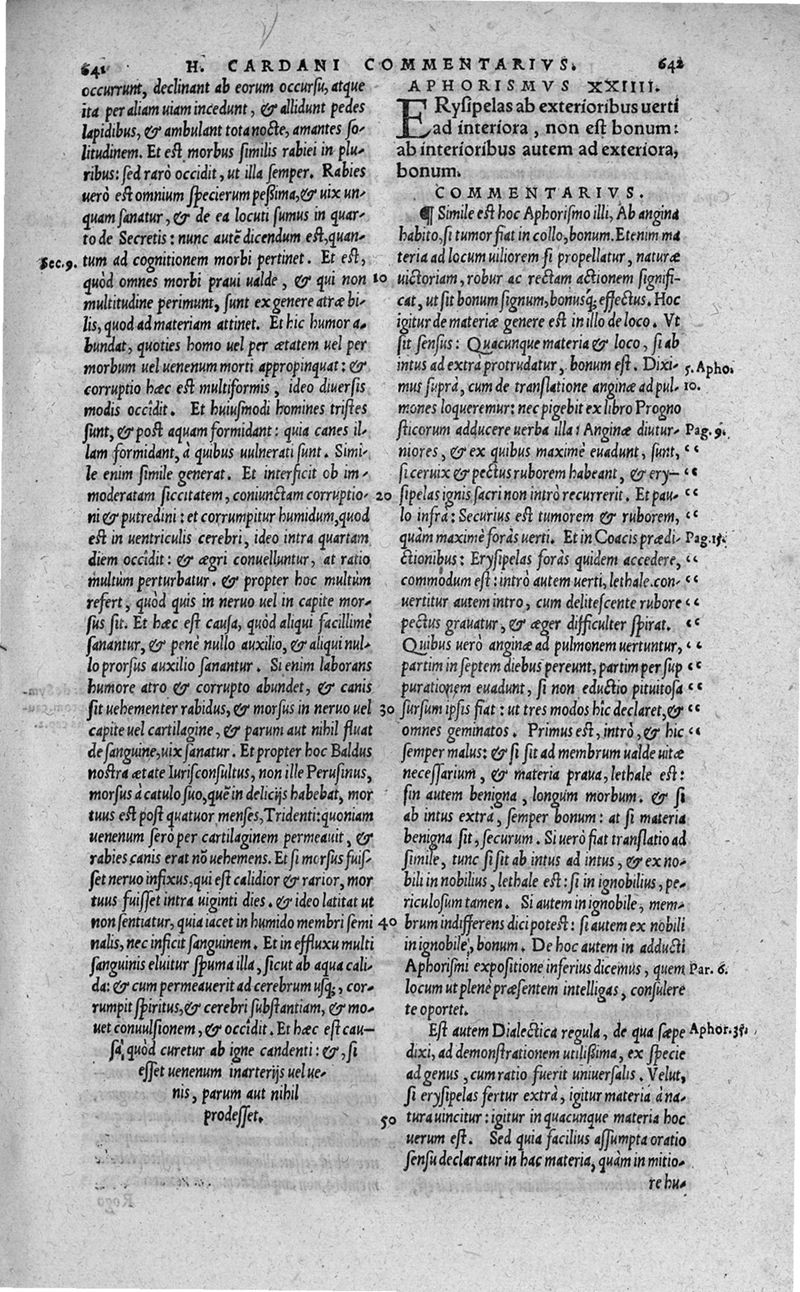 641
H. CARDANI COMMENTARIVS.
642
occurrunt, declinant ab eorum occursu, atque
ita per aliam uiam incedunt, & allidunt pedes
lapidibus, & ambulant tota nocte, amantes so-
litudinem. Et est morbus similis rabiei in plu-
ribus: sed rarò occidit, ut illa semper. Rabies
uerò est omnium specierum peßima, & uix un-
quam sanatur, & de ea locuti sumus in quar-
to de Secretis: nunc autē dicendum est, quan-
Sec. 9.
tum ad cognitionem morbi pertinet. Et est,
quòd omnes morbi praui ualde, & qui non
10
multitudine perimunt, sunt ex genere atræ bi-
lis, quod ad materiam attinet. Et hic humor a-
bundat, quoties homo uel per ætatem uel per
morbum uel uenenum morti appropinquat: &
corruptio hæc est multiformis, ideo diuersis
modis occîdit. Et huiusmodi homines tristes
sunt, & post aquam formidant: quia canes il-
lam formidant, à quibus uulnerati sunt. Simi-
le enim simile generat. Et interficit ob im-
moderatam siccitatem, coniunctam corruptio-
20
ni & putredini: et corrumpitur humidum, quod
est in uentriculis cerebri, ideo intra quartam
diem occîdit: & ægri conuelluntur, at ratio
multùm perturbatur. & propter hoc multùm
refert, quòd quis in neruo uel in capite mor-
sus sit. Et hæc est causa, quòd aliqui facillimè
sanantur, & penè nullo auxilio, & aliqui nul-
lo prorsus auxilio sanantur. Si enim laborans
humore atro & corrupto abundet, & canis
sit uehementer rabidus, & morsus in neruo uel
30
capite uel cartilagine, & parum aut nihil fluat
de sanguine, uix sanatur. Et propter hoc Baldus
nostra ætate Iurisconsultus, non ille Perusinus,
morsus à catulo suo, quē in delicijs habebat, mor
tuus est post quatuor menses, Tridenti: quoniam
uenenum serò per cartilaginem permeauit, &
rabies canis erat nō uehemens. Et si morsus fuis-
set neruo infixus, qui est calidior & rarior, mor
tuus fuisset intra uiginti dies. & ideo latitat ut
non sentiatur, quia iacet in humido membri semi
40
nalis, nec inficit sanguinem. Et in effluxu multi
sanguinis eluitur spuma illa, sicut ab aqua cali-
da: & cum permeauerit ad cerebrum usq;, cor-
rumpit spiritus, & cerebri substantiam, & mo-
uet conuulsionem, & occîdit. Et hæc est cau-
sa, quòd curetur ab igne candenti: &, si
esset uenenum in arterijs uel ue-
nis, parum aut nihil
prodesset.
50
APHORISMVS XXIIII.
ERysipelas ab exterioribus uerti
ad interiora, non est bonum:
ab interioribus autem ad exteriora,
bonum.
COMMENTARIVS.
¶ Simile est hoc Aphorismo illi, Ab angina
habito, si tumor fiat in collo, bonum. Etenim ma
teria ad locum uiliorem si propellatur, naturæ
uictoriam, robur ac rectam actionem signifi-
cat, ut sit bonum signum, bonusq; effectus. Hoc
igitur de materiæ genere est in illo de loco. Vt
sit sensus: Quacunque materia & loco, si ab
intus ad extrà protrudatur, bonum est. Dixi-
5. Apho.
mus suprà, cum de translatione anginæ ad pul-
10.
mones loqueremur: nec pigebit ex libro Progno
sticorum adducere uerba illa: Anginæ diutur-
Pag. 9.
niores, & ex quibus maximè euadunt, sunt,
“
si ceruix & pectus ruborem habeant, & ery-
“
sipelas ignis sacri non intrò recurrerit. Et pau-
“
lo infrà: Securius est tumorem & ruborem,
“
quàm maximè foràs uerti. Et in Coacis prædi-
Pag. 15.
ctionibus: Erysipelas foràs quidem accedere,
“
commodum est: intrò autem uerti, lethale. con-
“
uertitur autem intro, cum delitescente rubore
“
pectus grauatur, & æger difficulter spirat.
“
Quibus uerò anginæ ad pulmonem uertuntur,
“
partim in septem diebus pereunt, partim per sup
“
purationem euadunt, si non eductio pituitosa
“
sursum ipsis fiat: ut tres modos hîc declaret, &
“
omnes geminatos. Primus est, intrò, & hic
“
semper malus: & si sit ad membrum ualde uitæ
necessarium, & materia praua, lethale est:
sin autem benigna, longum morbum. & si
ab intus extrà, semper bonum: at si materia
benigna sit, securum. Si uerò fiat translatio ad
simile, tunc si sit ab intus ad intus, & ex no-
bili in nobilius, lethale est: si in ignobilius, pe-
riculosum tamen. Si autem in ignobile, mem-
brum indifferens dici potest: si autem ex nobili
in ignobile, bonum. De hoc autem in adducti
Aphorismi expositione inferius dicemus, quem
Par. 6.
locum ut plenè præsentem intelligas, consulere
te oportet.
Est autem Dialectica regula, de qua sæpe
Aphor. 35.
dixi, ad demonstrationem utilissima, ex specie
ad genus, cum ratio fuerit uniuersalis. Velut,
si erysipelas fertur extrà, igitur materia à na-
tura uincitur: igitur in quacunque materia hoc
uerum est. Sed quia facilius assumpta oratio
sensu declaratur in hac materia, quàm in mitio-
re hu-